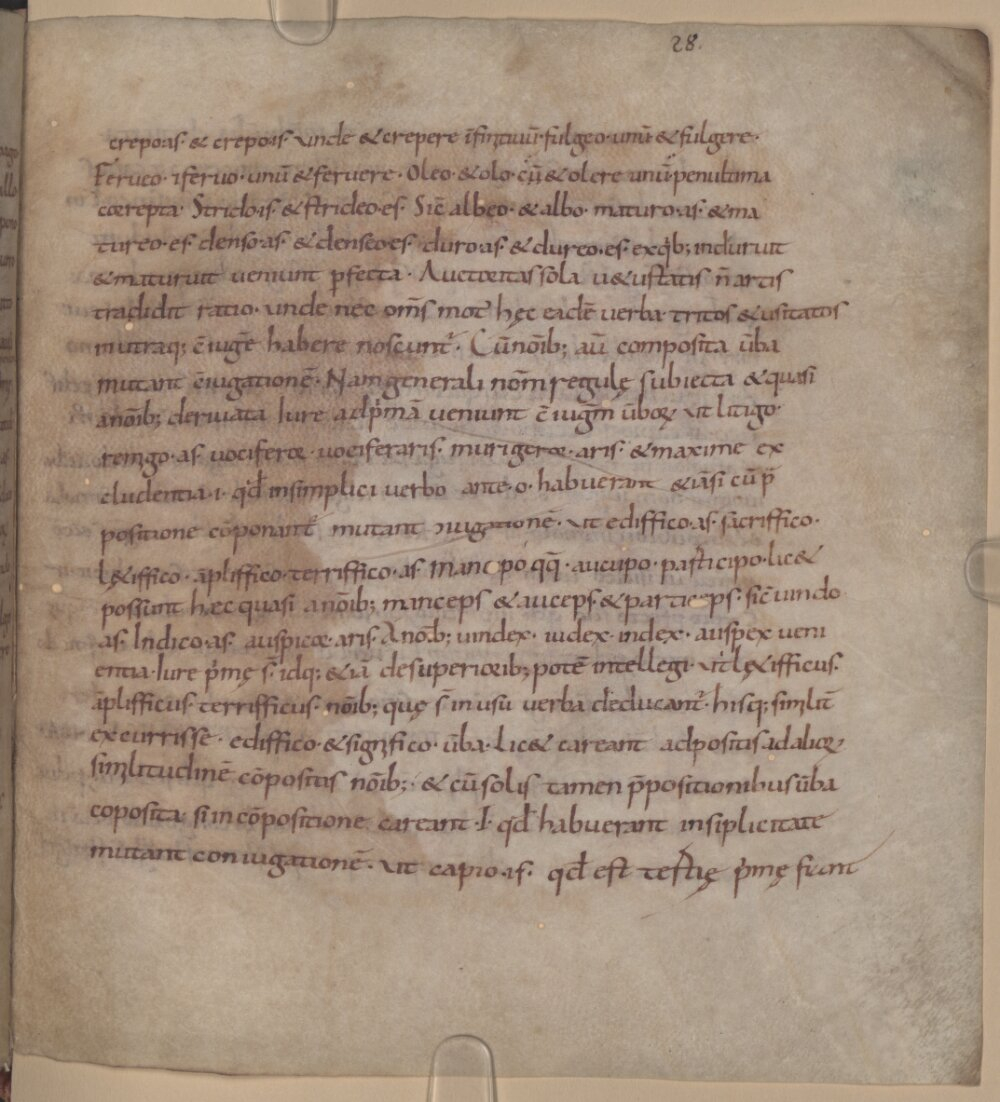 28.
crepo·as· & crepo·is· unde & crepere īfinitiuū· fulgeo· unū & fulgere·
Ferueo· ł feruo· unū & feruere· Oleo· & olo· cū & olere unū penultima
correpta· Strido·is· & strideo·es· Sic̄ albeo· & albo· maturo·as· & ma
tureo·es· denso·as· & denseo·es· duro·as· & dureo·es· ex quib; induruit
& maturuit ueniunt pfecta· Auctoritas sola u&ustatis n̄ artis
tradidit ratio· unde nec om̄s mot hęc eadē uerba tritos & usitatos
in utraq; c̄iugē habere noscunt᷑· Cū nōib; aū composita ūba
mutant c̄iugationē· Nam generali nōm regulę subiecta & quasi
a nōib; deriuata iure ad pⁱmā ueniunt c̄iugm̄ ūboꝝ ut litigo·
remigo·as· uociferor· uociferaris· murigeror·aris· & maxime ex
cludentia ·i· qd̄ in simplici uerbo ante ·o· habuerant & iāsi cū p̄
positione cōponant᷑ mutant iugationē· ut ediffico·as· sacriffico·
l&iffico· āpliffico· terriffico·as mancipo qq̄· aucupo· participo· lic&
possunt hæc quasi a nōib; manceps & auceps· & particeps· sic̄ uindo
as· Indico·as· auspicor·aris· A nōb; uindex· iudex· index· auspex ueni
entia· iure pⁱmę s̄· idq; & iā de superiorib; potē intellegi· ut l&ifficus·
āplifficus· terrifficus· nōib; quę s̄ in usu uerba deducant᷑· hisq; similit̄
excurrisse· ediffico· & significo· ūba· lic& careant adpositis ad alioꝝ
similitudinē cōpositis nōib; & cū solis tamen p̄positionibus ūba
coposita· si in cōpositione careant ·I· qd̄ habuerant in siplicitate
mutant coniugationē· ut capio·is· qd̄ est tertię pⁱmę fiunt